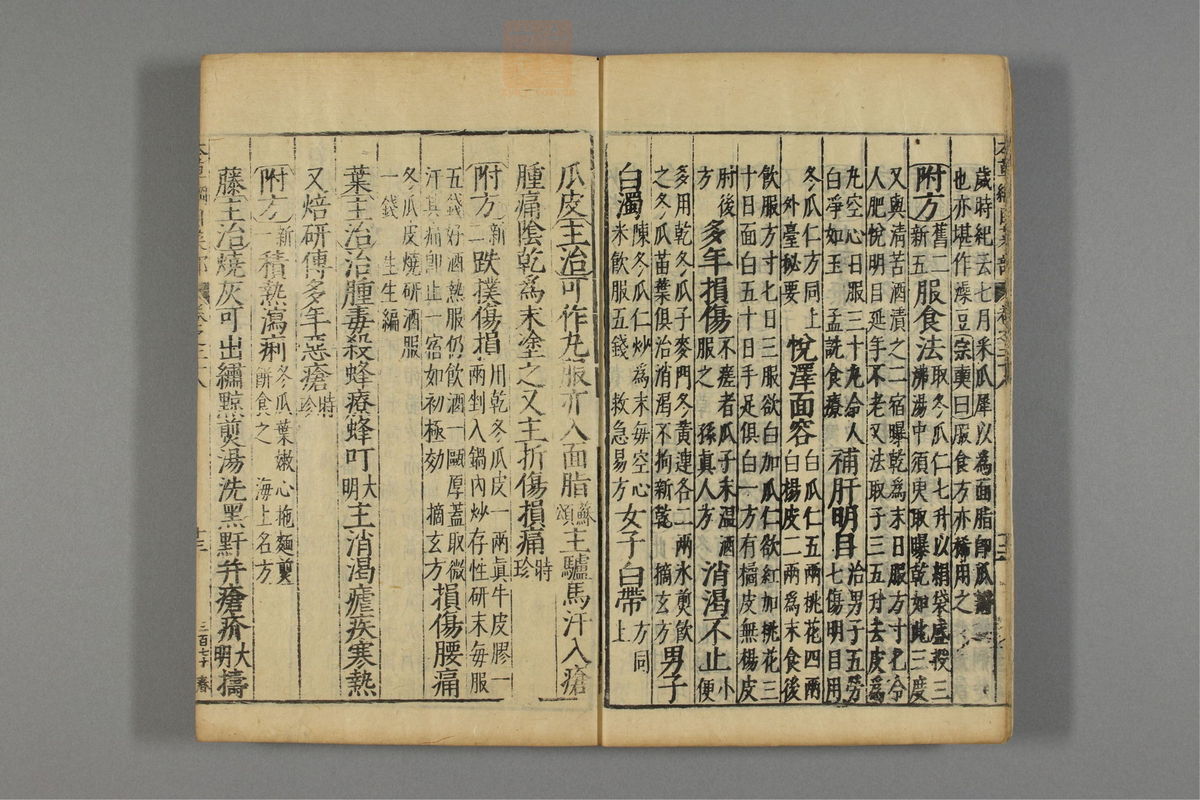 本草綱目菜部 卷之二十八
歲時紀云七月采瓜犀以為面脂即瓜瓣
也亦堪作澡豆宗奭曰服食方亦稀用之
附方舊二新五服食法取冬瓜仁七升以絹袋盛投三沸湯中須臾取曝乾如此三度
又與清苦酒漬之二宿曝乾為末日服方寸匕令
人肥悅明目延年不老又法取子三五升去皮為
丸空心日服三十丸令人白淨如玉孟詵食療補肝明目治男子五勞七傷明目用
冬瓜仁方同上外臺秘要悅澤面容白瓜仁五兩桃花四兩白楊皮二兩為末食後
飲服方寸匕日三服欲白加瓜仁欲紅加桃花三
十日面白五十日手足俱白一方有橘皮無楊皮
肘後方多年損傷不瘥者瓜子末溫酒服之孫真人方消渴不止小便
多用乾冬瓜子麥門冬黃連各二兩水煎飲
之冬瓜苗葉俱治消渴不拘新乾摘玄方男子
白濁陳冬瓜仁炒為末每空心米飲服五錢救急易方女子白帶方同上
瓜皮主治可作丸服亦入面脂蘇頌主驢馬汗入瘡
腫痛陰乾為末塗之又主折傷損痛時珍
附方新二跌撲傷損用乾冬瓜皮一兩真牛皮膠一兩剉入鍋內炒存性研末每服
五錢好酒熱服仍飲酒一甌厚蓋取微汗其痛即止一宿如初極効摘玄方損傷腰痛
冬瓜皮燒研酒服一錢生生編
葉主治治腫毒殺蜂療蜂叮大明主消渴瘧疾寒熱
又焙研傅多年惡瘡時珍
附方新一積熱瀉痢冬瓜葉嫩心拖麵煎餅食之海上名方
藤主治燒灰可出繡黥煎湯洗黑䵟并瘡疥大明擣
本草綱目菜部 卷之二十八 十三 三百七十